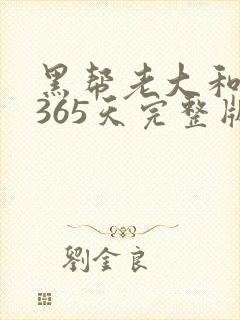 黑帮老大和
365天完整版
劉金良